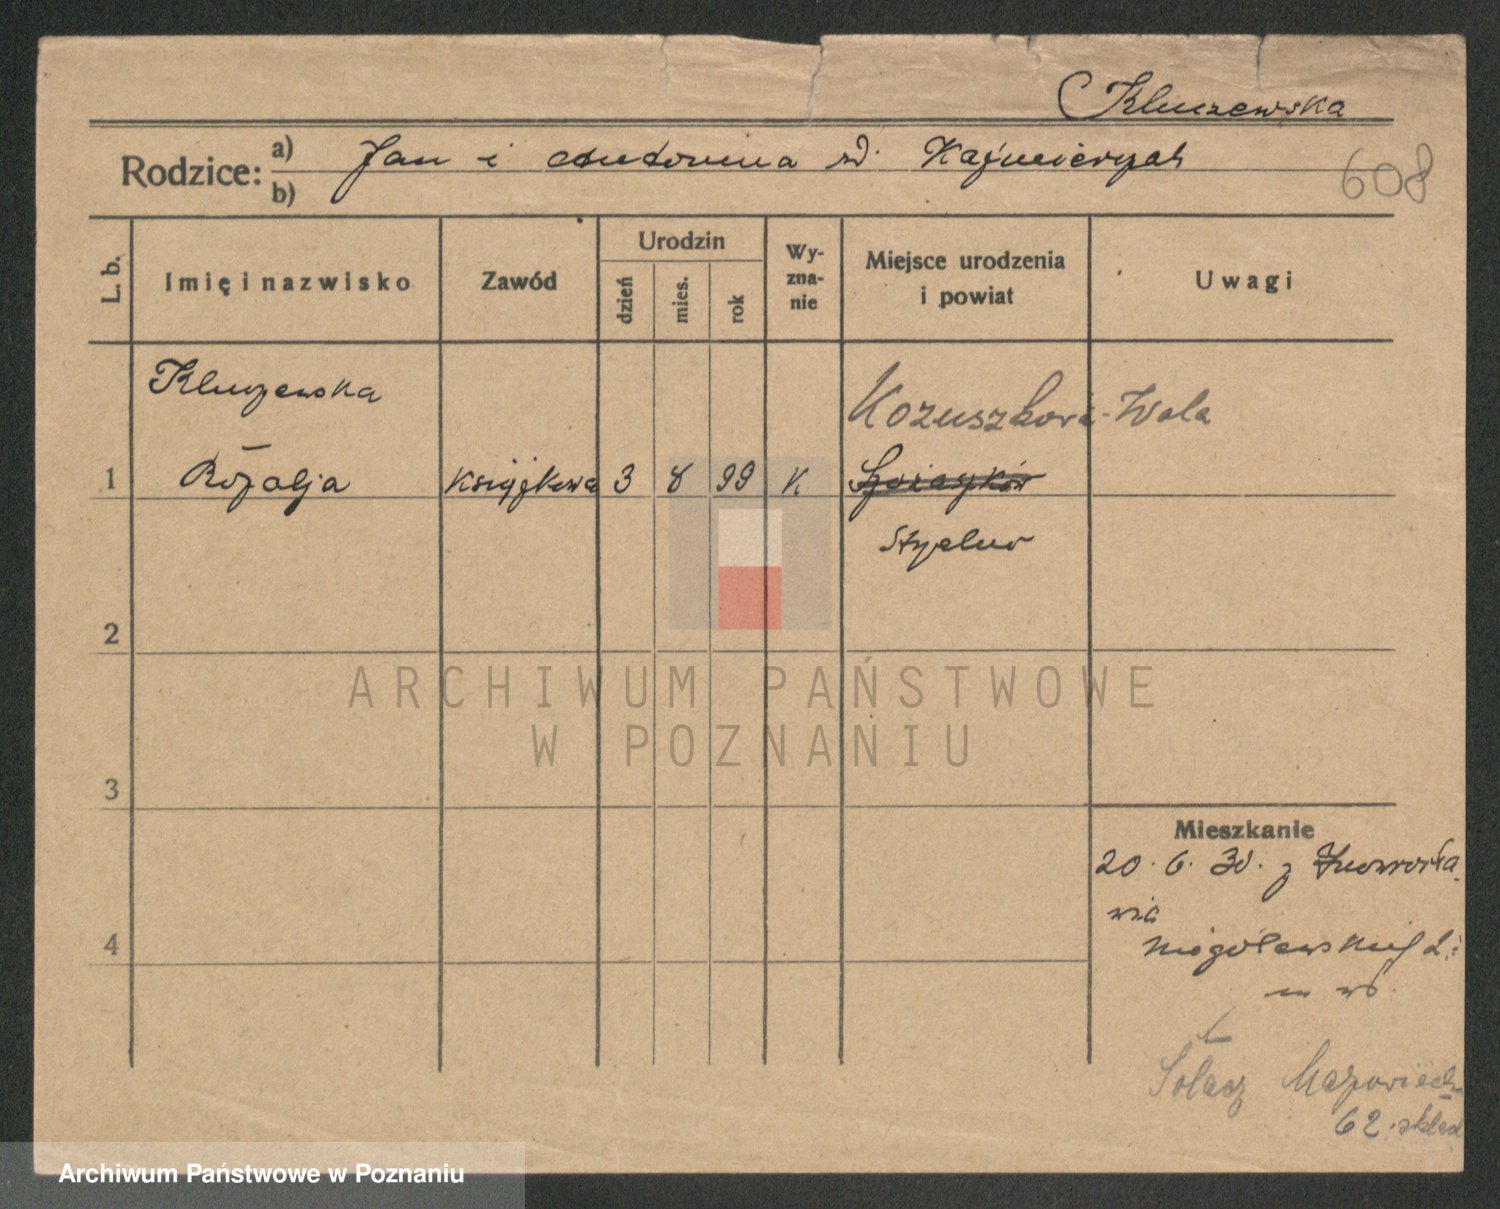 Kluczewska
Rodzice: a) Jan i Antonina zd. Kaźmierczak
b)
608
L. b. Imię i nazwisko Zawód Urodzin dzień mies. rok Wyznanie Miejsce urodzenia i powiat Uwagi
Kluczewska
Kozuszkowa-Wola
1 Rozalja książkowa 3 8 99 K
Strzelno
2
ARCHIWUM PAŃSTWOWE
W POZNANIU
3
Mieszkanie
20. 6. 30. z Inowrocła-
wia
4
Niegolewskich
Sołacz Mazowiecka
62. skład
Archiwum Państwowe w Poznaniu